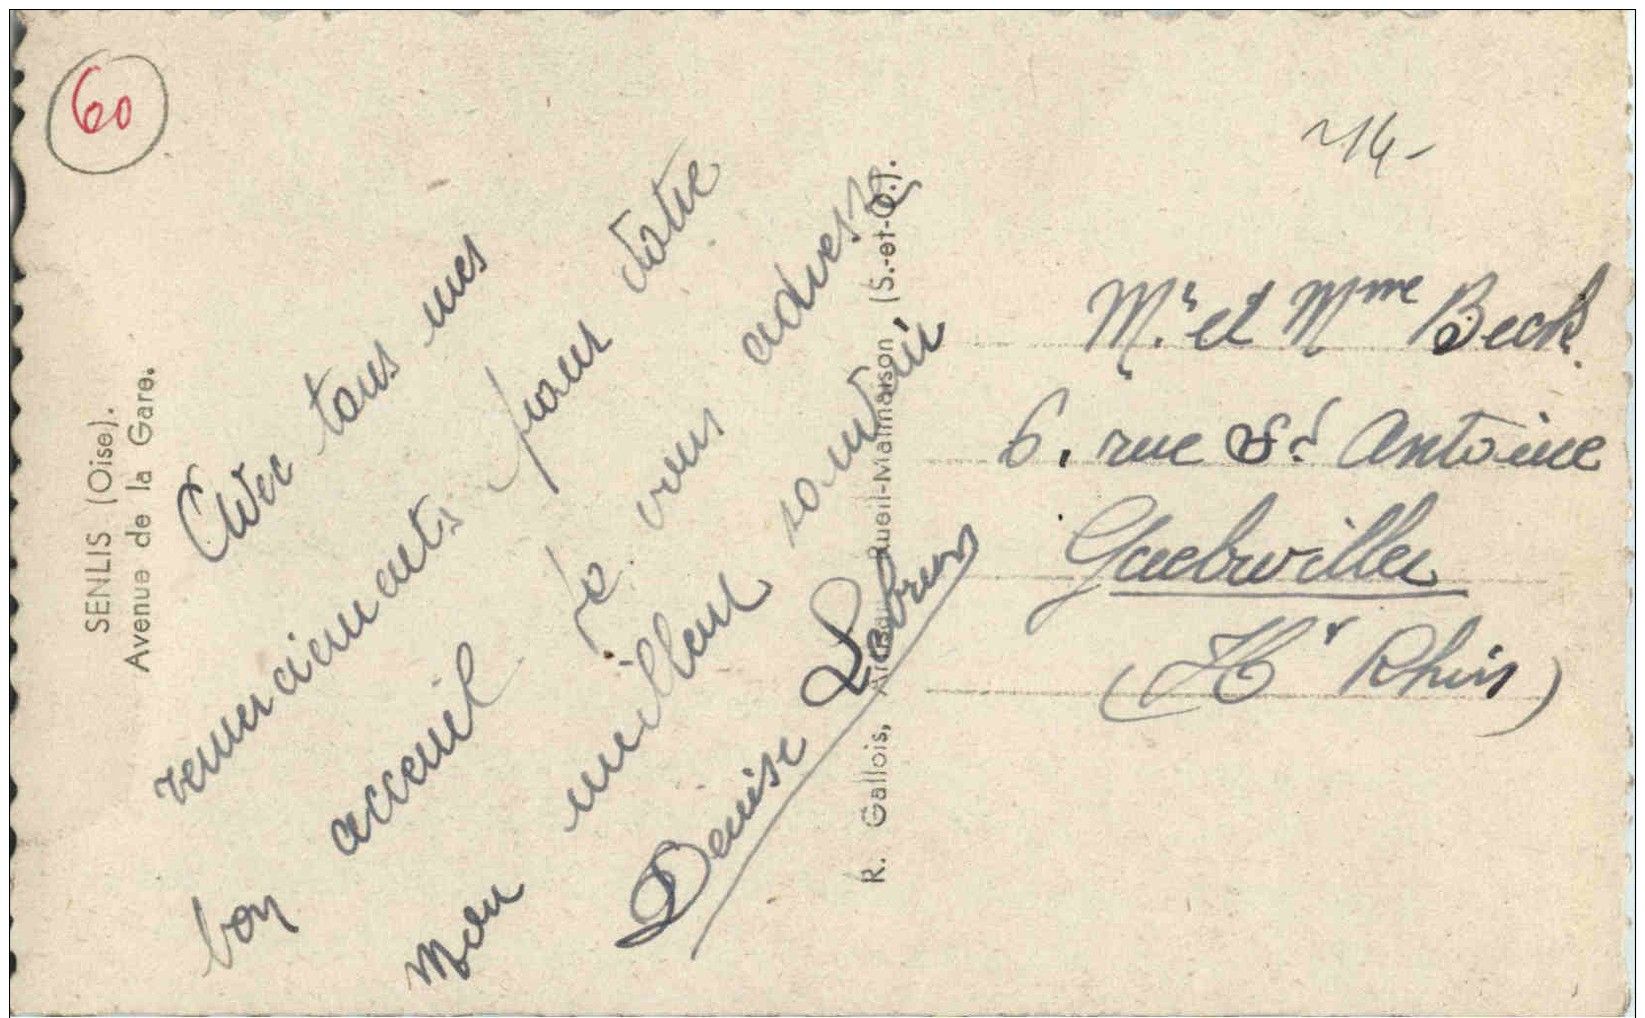 60
14-
SENLIS (Oise).
Avenue de la Gare.
Avec tous mes
remerciements pour votre
bon acceuil je vous adresse
mon meilleur souvenir
Denise Lebrun
R. Gallois, Rueil-Malmaison (S.-et-O.).
Mr. et Mme Beck
6, rue St Antoine
Guebwiller
(Ht Rhin)